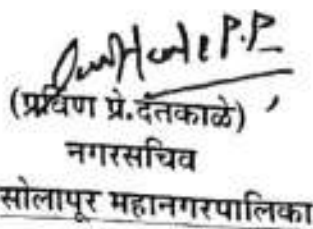 P.P.
(प्रविण प्रे.दंतकाळे)
नगरसचिव
सोलापूर महानगरपालिका